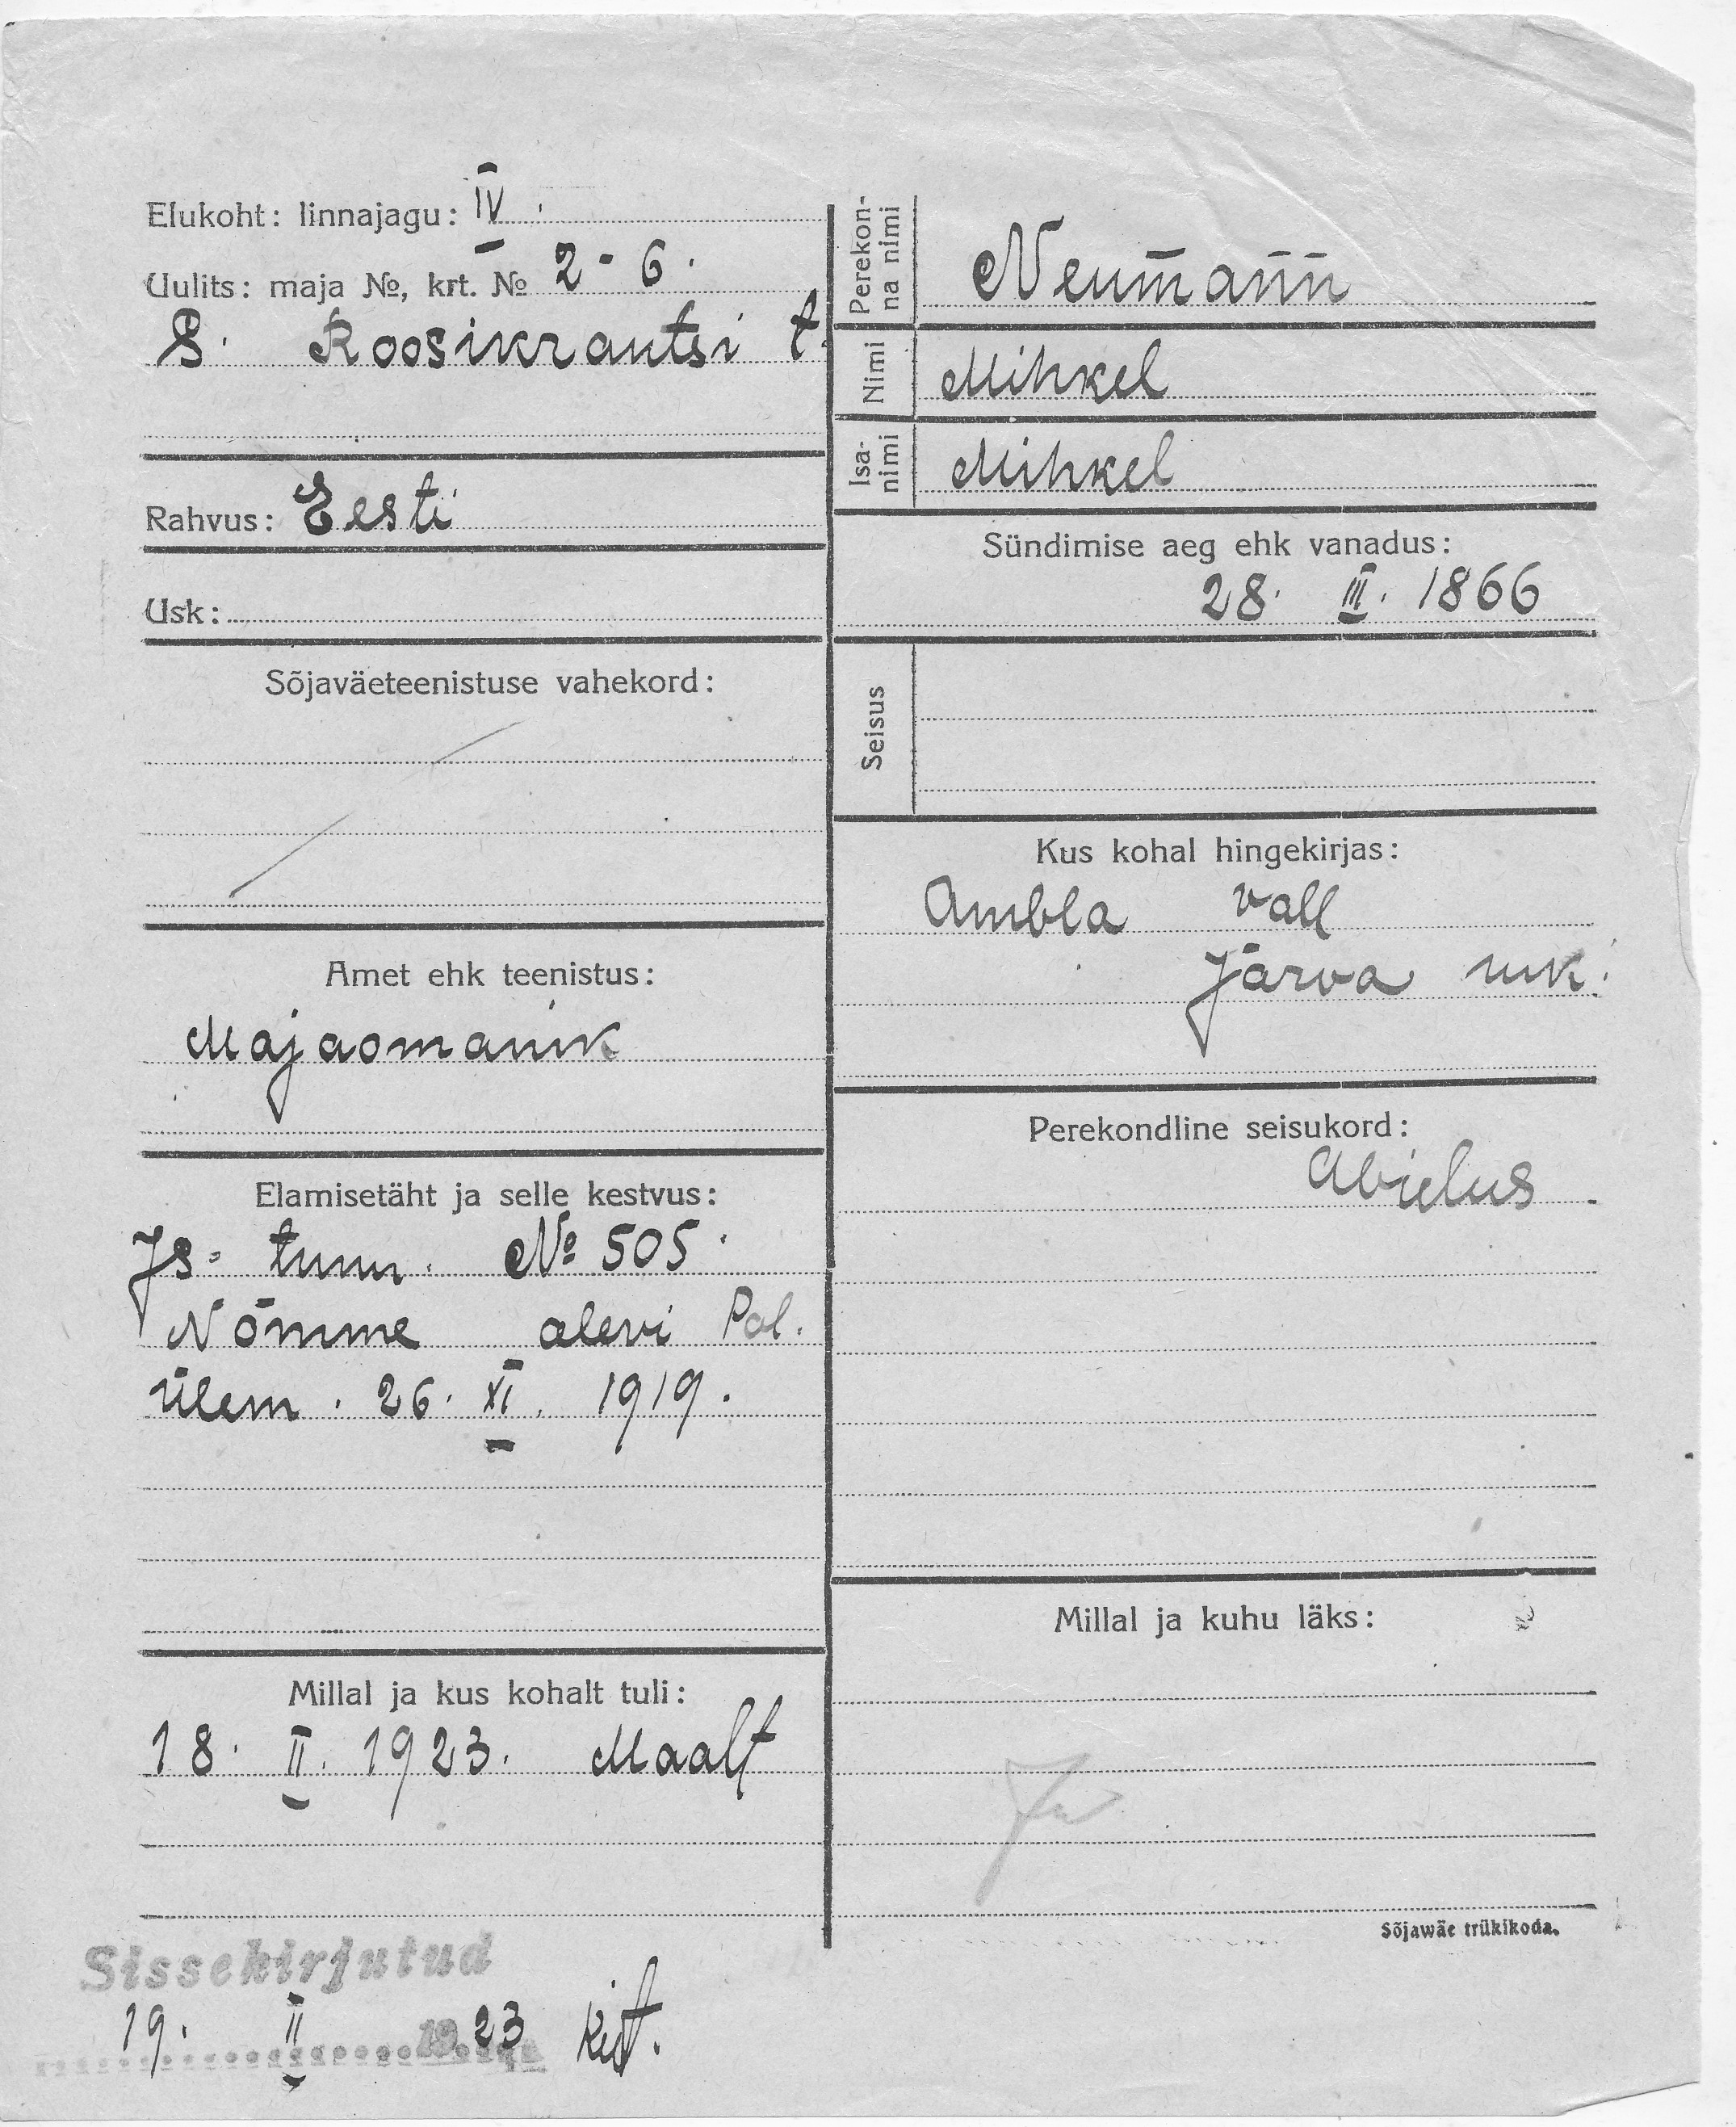 Elukoht: linnajagu: IV.
Uulits: maja №, krt. № 2-6.
S. Roosikrantsi t.
Rahvus: Eesti
Usk:
Sõjaväeteenistuse vahekord:
Amet ehk teenistus:
Majaomanik
Elamisetäht ja selle kestvus:
Is-tunn. № 505.
Nõmme alevi Pol.
ülem. 26. XI. 1919.
Millal ja kus kohalt tuli:
18. II. 1923. Maalt
Sissekirjutud
19. II 1923
Perekon-
na nimi Neumann
Nimi Mihkel
Isa-
nimi Mihkel
Sündimise aeg ehk vanadus:
28. III. 1866
Seisus
Kus kohal hingekirjas:
Ambla vall
Järva mk.
Perekondline seisukord:
Abielus
Millal ja kuhu läks:
Sõjawäe trükikoda.